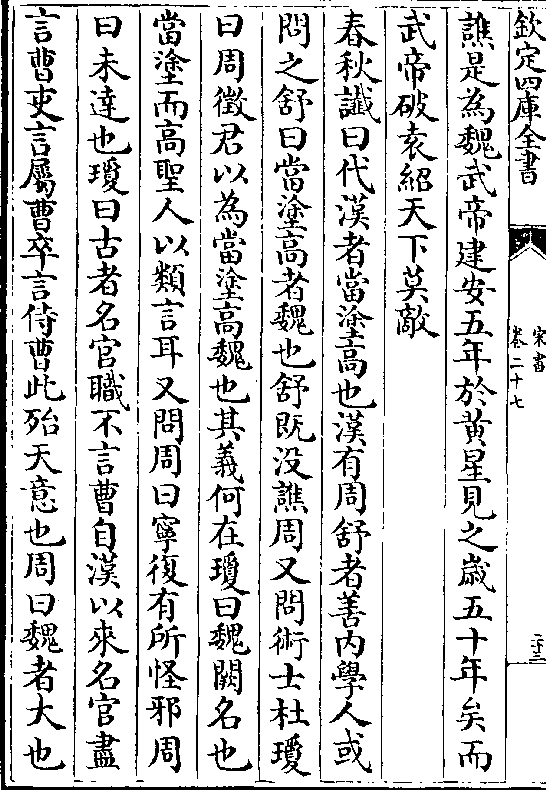 欽定四庫全書
宋書
卷二十七
二十三
譙是為魏武帝建安五年於黄星見之歲五十年矣而
武帝破袁紹天下莫敵
春秋讖曰代漢者當塗高也漢有周舒者善内學人或
問之舒曰當塗高者魏也舒既没譙周又問術士杜瓊
曰周徵君以為當塗高魏也其義何在瓊曰魏闕名也
當塗而高聖人以類言耳又問周曰寧復有所怪邪周
曰未達也瓊曰古者名官職不言曹自漢以來名官盡
言曹吏言屬曹卒言侍曹此殆天意也周曰魏者大也